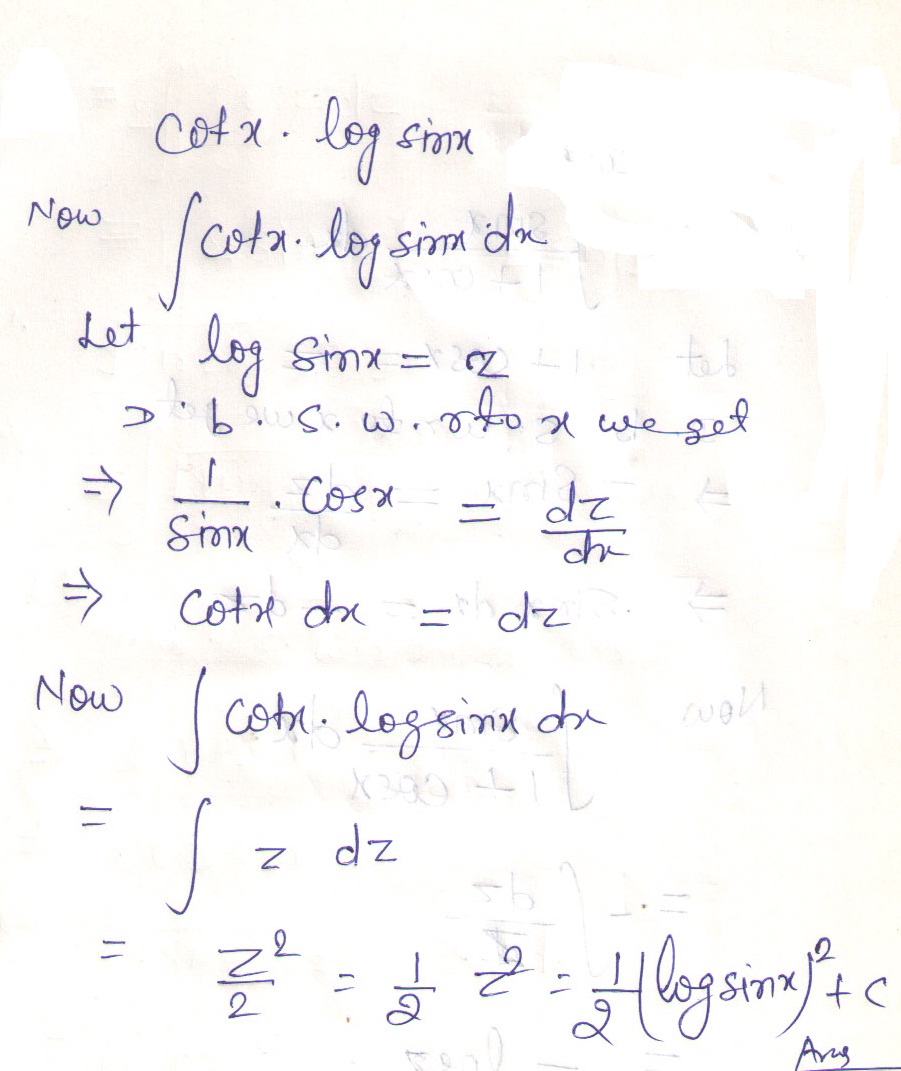 cotx. log sinx
Now ∫ cotx. log sinx dx
Let log sinx = z
D. b. s. w. r to x we get
⇒ 1/sinx . cosx = dz/dx
⇒ cotx dx = dz
Now ∫ cotx. log sinx dx
= ∫ z dz
= z²/2 = 1/2 z² = 1/2 (log sinx)² + c
Ans